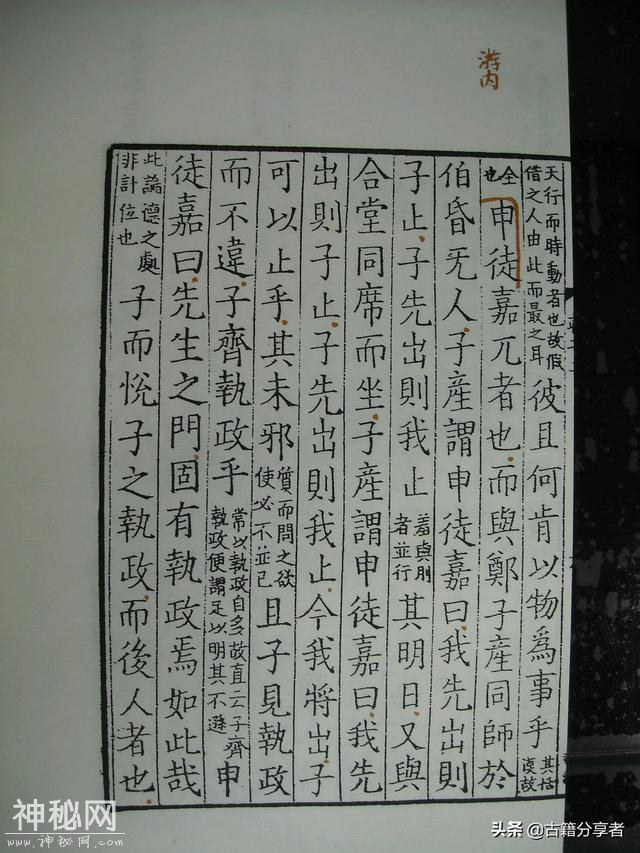 游内
天行而時動者也故假
借之人由此而最之耳
彼且何肯以物爲事乎
其恬
漠故
全
也
申徒嘉兀者也而與鄭子產同師於
伯昏无人子產謂申徒嘉曰我先出則
子止子先出則我止
羞與刖
者並行
其明日又與
合堂同席而坐子產謂申徒嘉曰我先
出則子止子先出則我止今我將出子
可以止乎其未邪
質而問之欲
使必不並已
且子見執政
而不違子齊執政乎
常以執政自多故直云子齊
執政便謂足以明其不遜
申
徒嘉曰先生之門固有執政焉如此哉
此論德之處
非計位也
子而悅子之執政而後人者也
神秘网
www.神秘网.com
头条 @古籍分享者